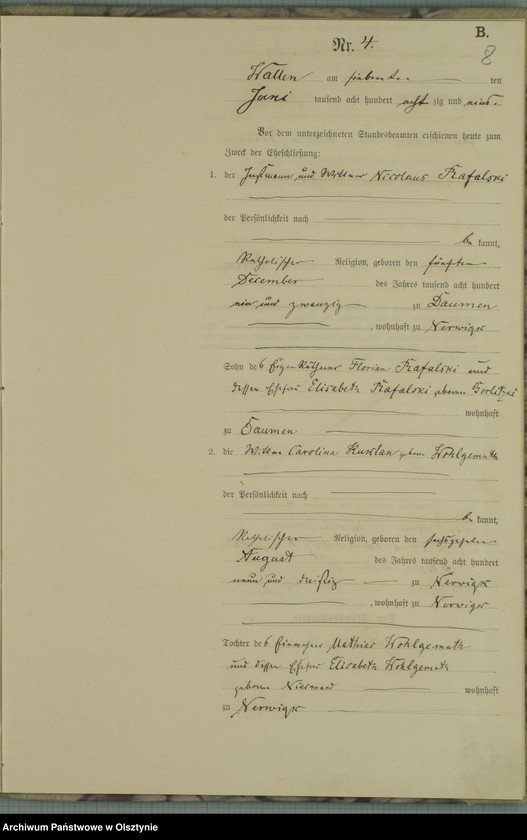 B.
8
Nr. 4.
Wallen am siebenten ten
Juni tausend acht hundert acht zig und neun.
Vor dem unterzeichneten Standesbeamten erschienen heute zum
Zweck der Eheschließung:
1. der Instmann und Wittwer Nicolaus Rafalski
der Persönlichkeit nach
be kannt,
Katholischer Religion, geboren den fünften
December des Jahres tausend acht hundert
ein und zwanzig zu Daumen
, wohnhaft zu Nerwigk
Sohn des Eigenkäthner Florian Rafalski und
dessen Ehefrau Elisabeth Rafalski geborene
wohnhaft
zu Daumen
2. die Wittwe Carolina Kuklan geborne Wohlgemuth
der Persönlichkeit nach
be kannt,
Katholischer Religion, geboren den sechszehnten
August des Jahres tausend acht hundert
neun und dreißig zu Nerwigk
, wohnhaft zu Nerwigk
Tochter des Einwohner Mathias Wohlgemuth
und dessen Ehefrau Elisabeth Wohlgemuth
geborene
wohnhaft
zu Nerwigk
Archiwum Państwowe w Olsztynie